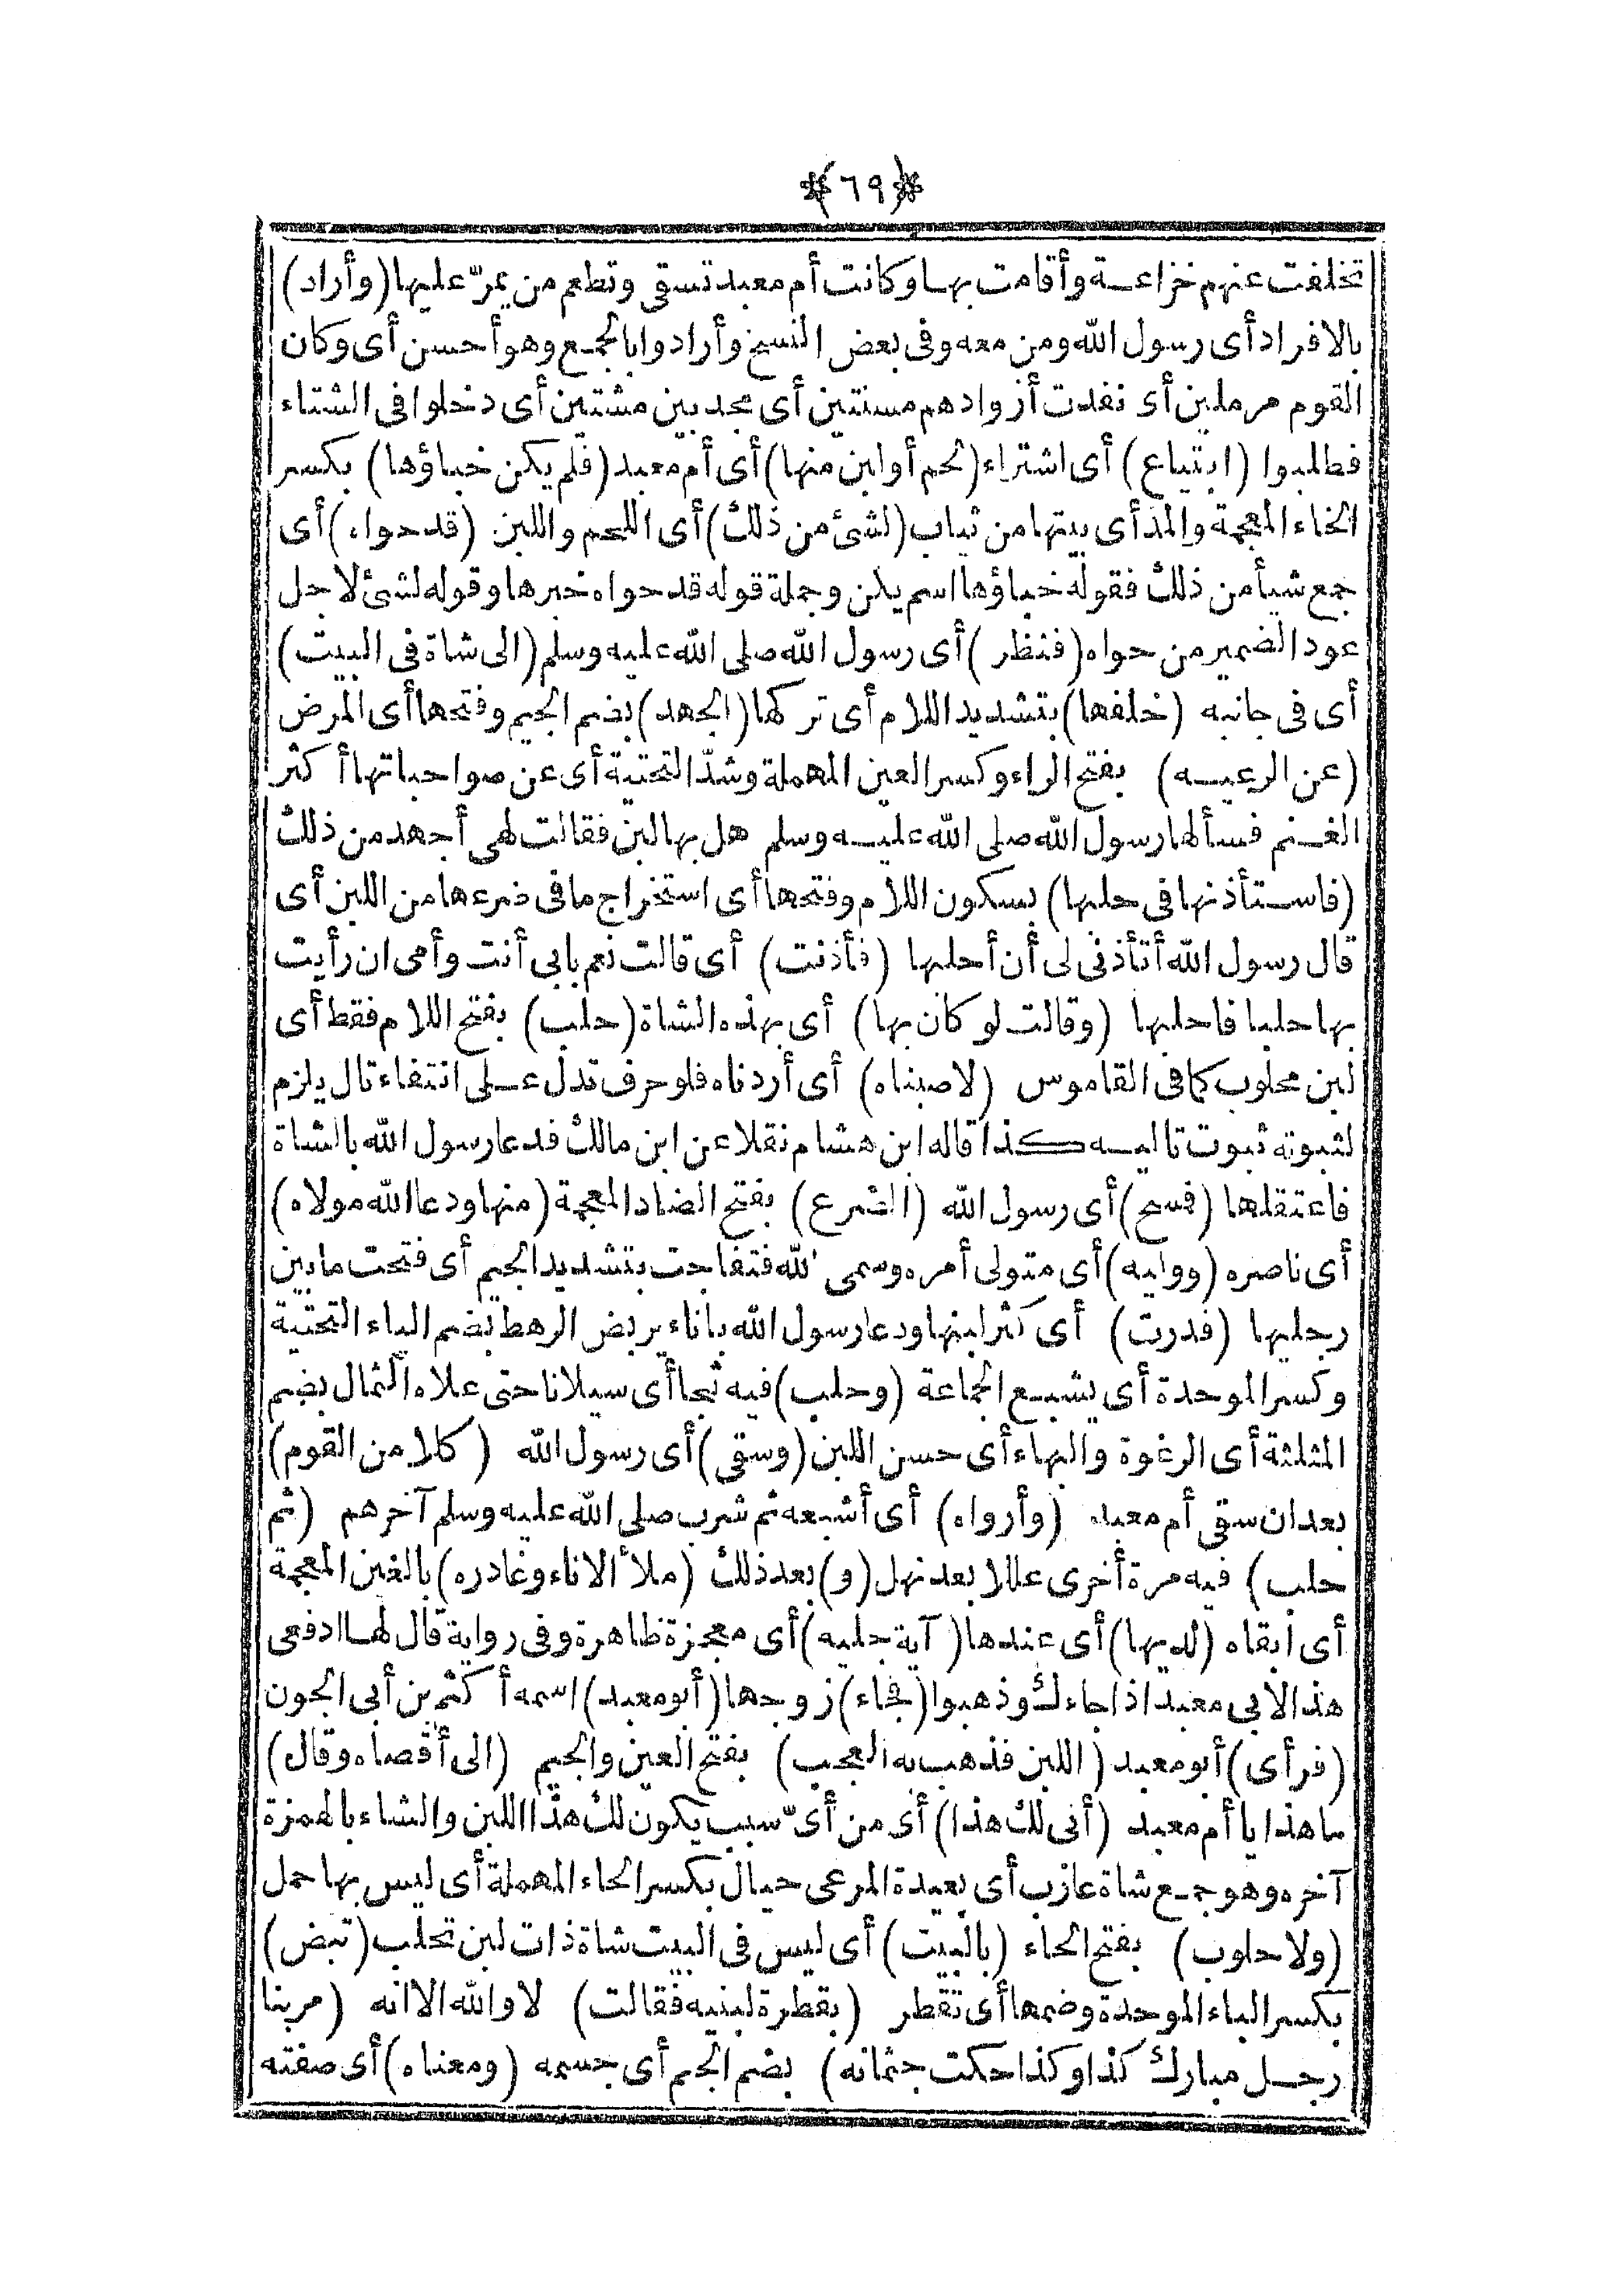 *(٦٩)*
تخلفت عنهم خزاعة وأقامت بها وكانت أم معبد تسقى وتطعم من يمرّ عليها (وأراد)
بالافراد أى رسول الله ومن معه وفى بعض النسخ وأرادوا بالجمع وهو أحسن أى وكان
القوم مرملين أى نفدت أزوادهم مسنتين أى مجدبين مشتين أى دخلوا فى الشتاء
فطلبوا (ابتياع) أى اشتراء (لحم أو لبن منها) أى أم معبد (فلم يكن خباؤها) بكسر
الخاء المعجمة والمد أى بيتها من ثياب (لشئ من ذلك) أى اللحم واللبن (قد حواه) أى
جمع شيأ من ذلك فقوله خباؤها اسم يكن وجملة قوله قد حواه خبرها وقوله لشئ لاجل
عود الضمير من حواه (فنظر) أى رسول الله صلى الله عليه وسلم (الى شاة فى البيت)
أى فى جانبه (خلفها) بتشديد اللام أى تركها (الجهد) بضم الجيم وفتحها أى المرض
(عن الرعيه) بفتح الراء وكسر العين المهملة وشدّ التحتية أى عن صواحباتها أكثر
الغنم فسألها رسول الله صلى الله عليه وسلم هل بها لبن فقالت لهى أجهد من ذلك
(فاستأذنها فى حلبها) بسكون اللام وفتحها أى استخراج ما فى ضرعها من اللبن أى
قال رسول الله أتأذنى لى أن أحلبها (فأذنت) أى قالت نعم بابى أنت وأمى ان رأيت
بها حلبا فاحلبها (وقالت لو كان بها) أى بهذه الشاة (حلب) بفتح اللام فقط أى
لبن محلوب كما فى القاموس (لاصبناه) أى أردناه فلو حرف تدل على انتفاء تال يلزم
لثبوته ثبوت تاليه كذا قاله ابن هشام نقلا عن ابن مالك فدعا رسول الله بالشاة
فاعتقلها (فمسح) أى رسول الله (الضرع) بفتح الضاد المعجمة (منها ودعا الله مولاه)
أى ناصره (ووليه) أى متولى أمره وسمى الله فتفاجت بتشديد الجيم أى فتحت ما بين
رجليها (فدرت) أى كثر لبنها ودعا رسول الله باناء يربض الرهط بضم الياء التحتية
وكسر الموحدة أى يشبع الجماعة (وحلب) فيه ثجا أى سيلانا حتى علاه الثمال بضم
المثلثة أى الرغوة والبهاء أى حسن اللبن (وسقى) أى رسول الله (كلا من القوم)
بعد ان سقى أم معبد (وأرواه) أى أشبعه ثم شرب صلى الله عليه وسلم آخرهم (ثم
حلب) فيه مرة أخرى عللا بعد نهل (و) بعد ذلك (ملأ الاناء وغادره) بالغين المعجمة
أى ابقاه (لديها) أى عندها (آية جليه) أى معجزة ظاهرة وفى رواية قال لها ادفعى
هذا لابى معبد اذا جاءك وذهبوا (فجاء) زوجها (أبو معبد) اسمه أكثم بن أبى الجون
(فرأى) أبو معبد (اللبن فذهب به العجب) بفتح العين والجيم (الى أقصاه وقال)
ما هذا يا أم معبد (أنى لك هذا) أى من أىّ سبب يكون لك هذا اللبن والشاء بالهمزة
آخره وهو جمع شاة عازب أى بعيدة المرعى حيال بكسر الحاء المهملة أى ليس بها حمل
(ولا حلوب) بفتح الحاء (بالبيت) أى ليس فى البيت شاة ذات لبن تحلب (تبض)
بكسر الباء الموحدة وضمها أى تقطر (بقطرة لبنيه فقالت) لا والله الا انه (مر بنا
رجل مبارك كذا وكذا حكت جثمانه) بضم الجيم أى جسمه (ومعناه) أى صفته